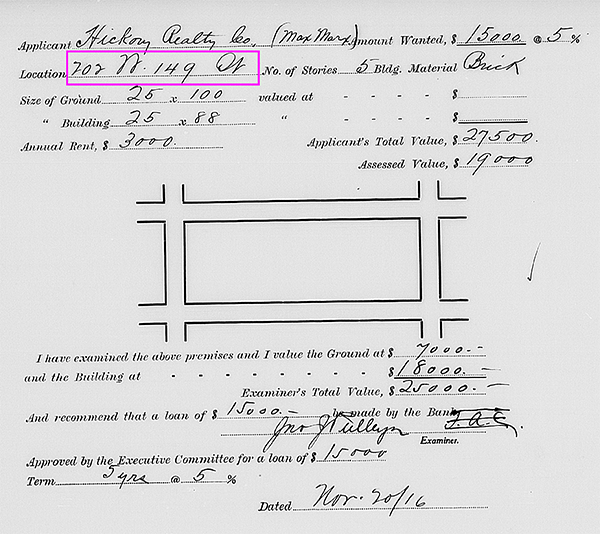 Applicant Hickory Realty Co. (Max Marx) Amount Wanted, $ 15000. @ 5 %
Location 202 W. 149 St No. of Stories 5 Bldg. Material Brick
Size of Ground 25 x 100 valued at - - - - $
" Building 25 x 88 " - - - - $
Annual Rent, $ 3000. Applicant's Total Value, $ 27500.
Assessed Value, $ 19000
I have examined the above premises and I value the Ground at $ 7000.-
and the Building at - - - - - - - - $ 18000.-
Examiner's Total Value, $ 25000.-
And recommend that a loan of $ 15000.- be made by the Bank
Jno J
Examiner.
Approved by the Executive Committee for a loan of $ 15000
Term 3 yrs @ 5 %
Dated Nov. 20/16